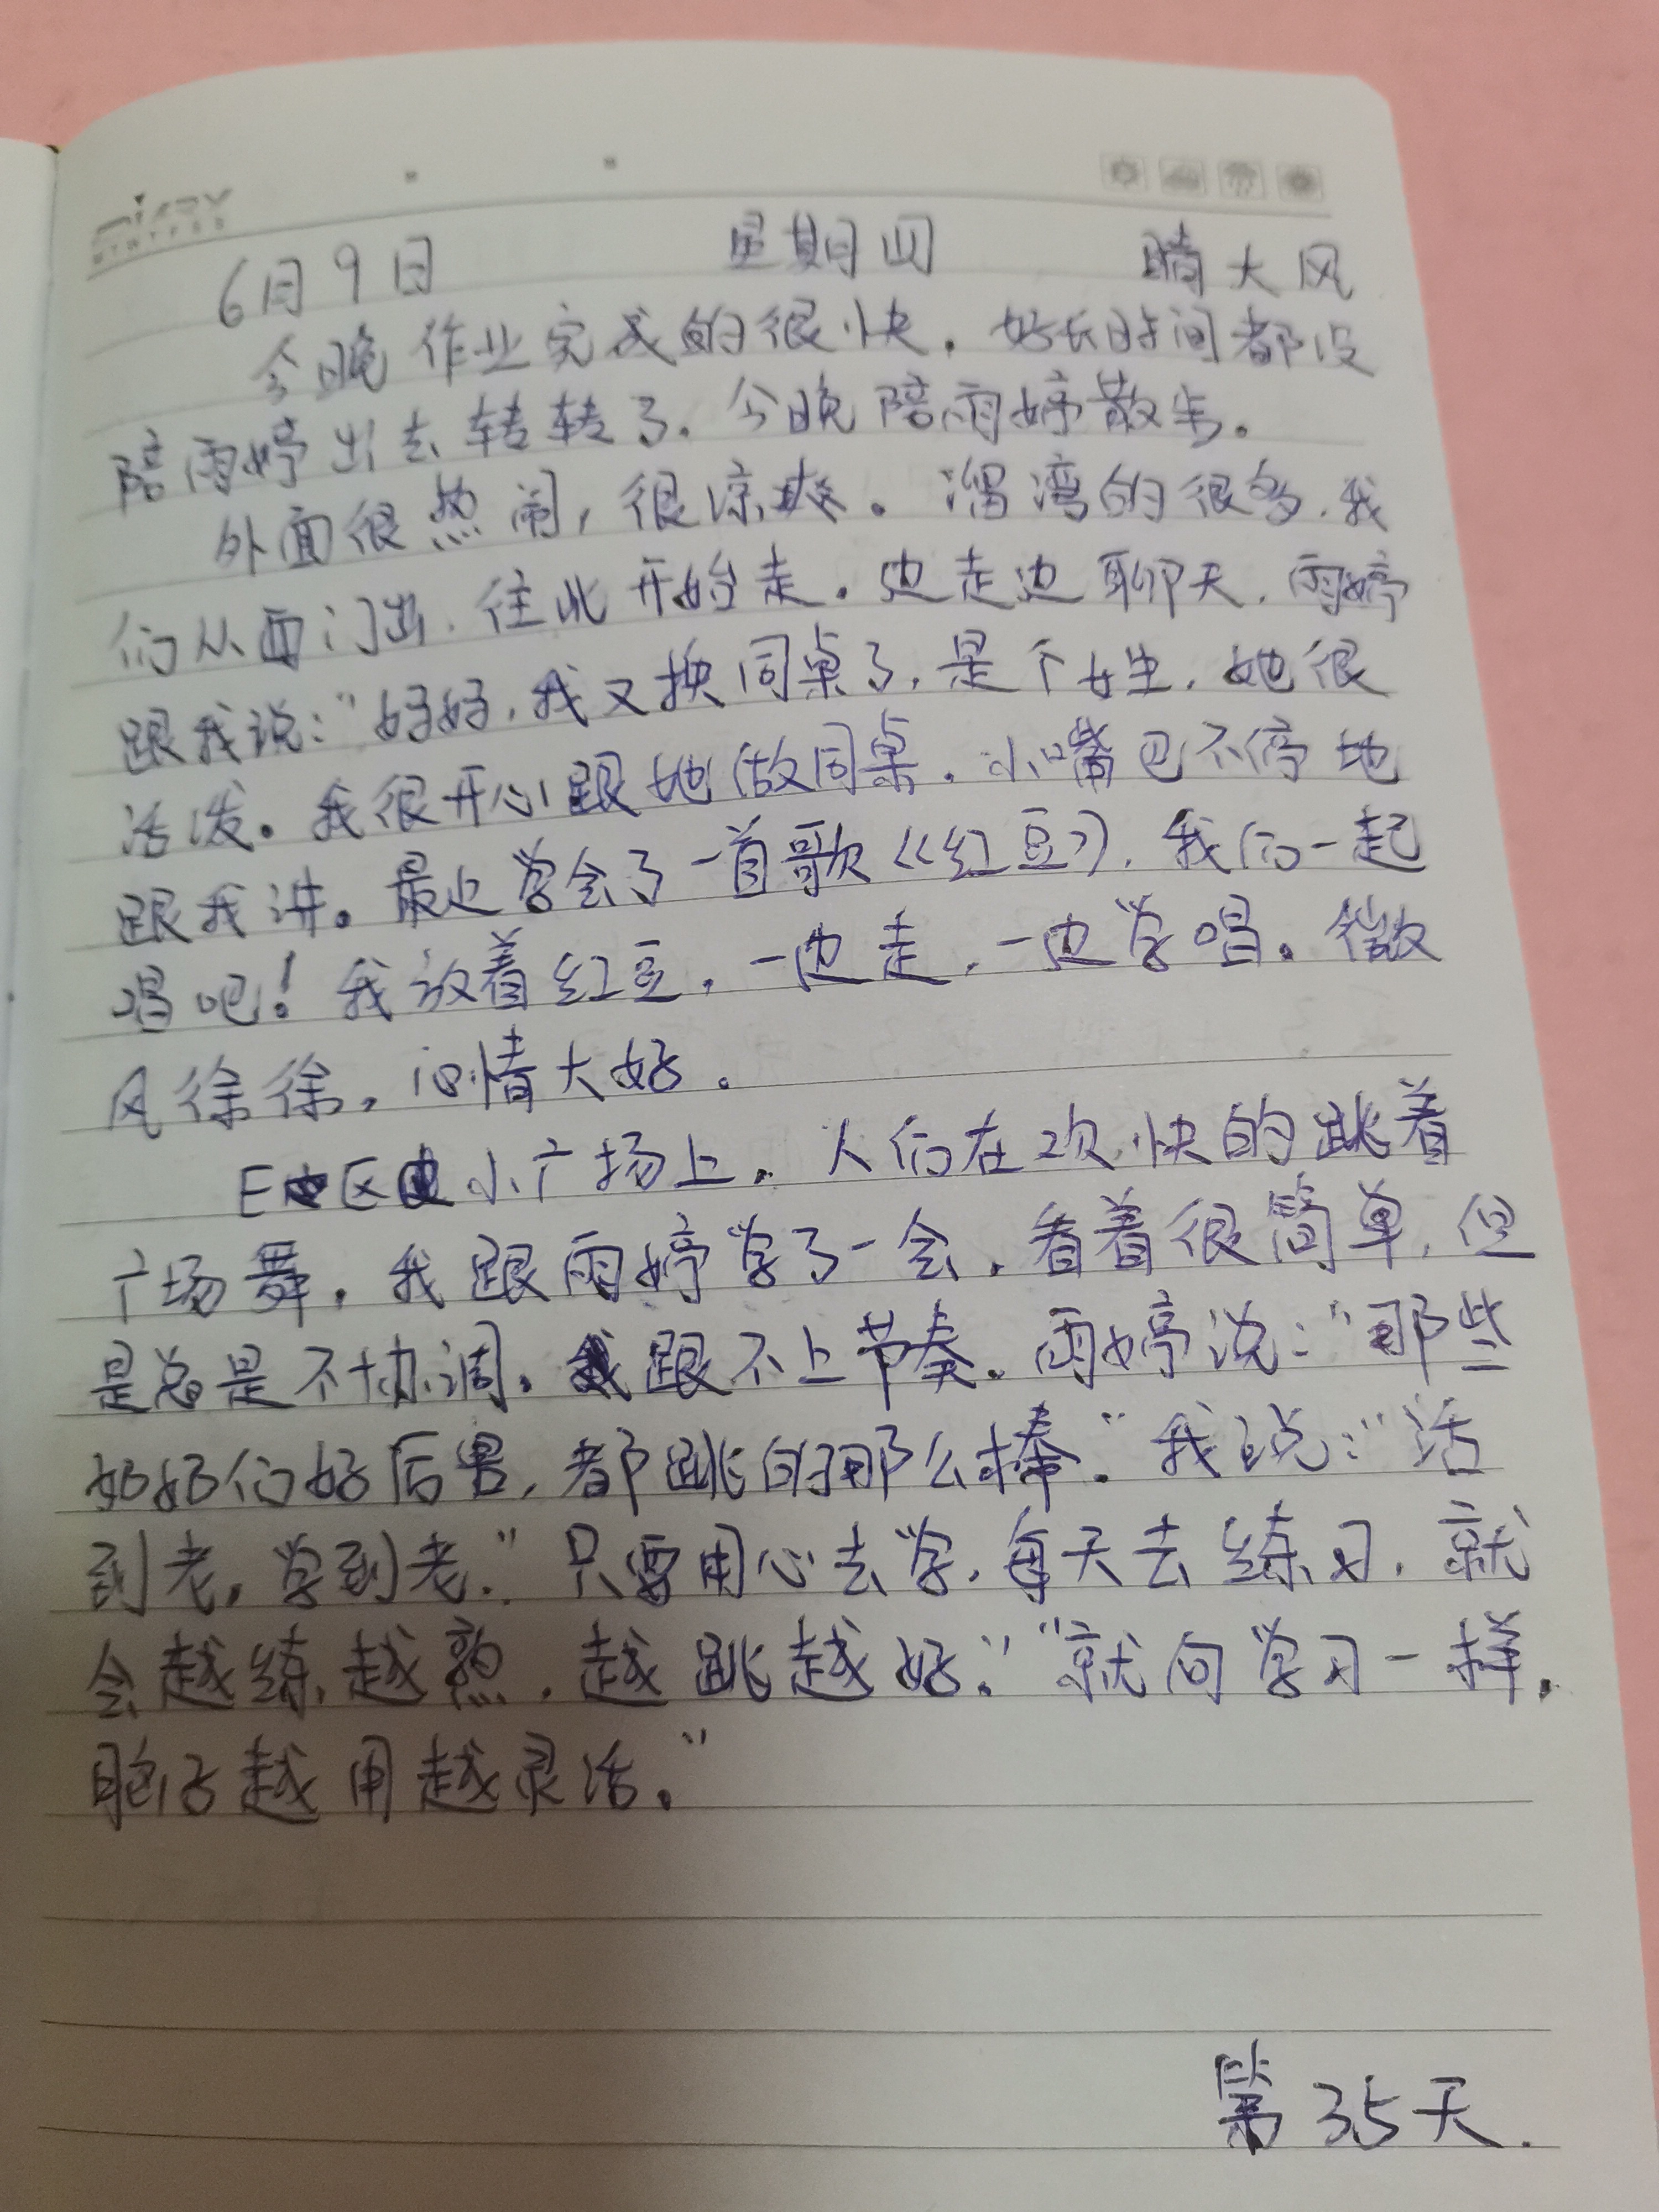 DIARY
M T W T F S S
6月9日 星期四 晴大风
今晚作业完成的很快.好长时间都没
陪雨婷出去转转了.今晚陪雨婷散步。
外面很热闹,很凉爽。溜湾的很多.我
们从西门出.往北开始走.边走边聊天.雨婷
跟我说:"妈妈,我又换同桌了,是个女生,她很
活泼。我很开心跟她做同桌.小嘴巴不停地
跟我讲。最近学会了一首歌《红豆》,我们一起
唱吧!我放着红豆,一边走,一边学唱。微
风徐徐,心情大好.
E区小广场上.人们在欢快的跳着
广场舞.我跟雨婷学了一会.看着很简单,但
是总是不协调.跟不上节奏.雨婷说:"那些
奶奶们好厉害,都跳的那么棒."我说:"活
到老,学到老."只要用心去学,每天去练习.就
会越练越熟.越跳越好.""就向学习一样,
脑子越用越灵活."
第35天.